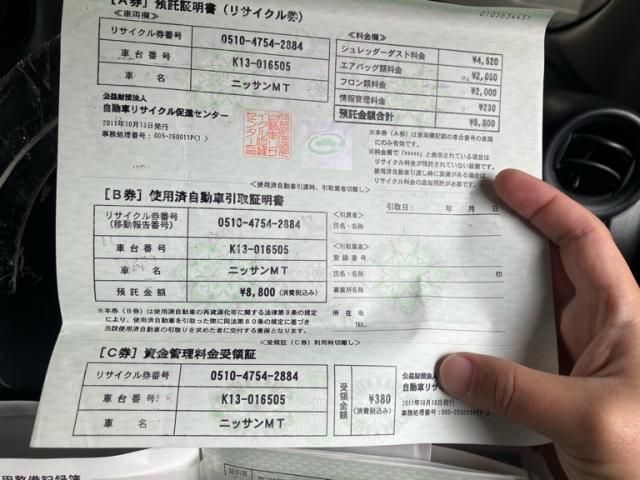 [A券] 預託証明書 (リサイクル券)
0105636451
<車両欄>
リサイクル券番号 0510-4754-2884
車台番号 K13-016505
車名 ニッサンMT
<料金欄>
シュレッダーダスト料金 ¥4,520
エアバッグ類料金 ¥2,050
フロン類料金 ¥2,000
情報管理料金 ¥230
預託金額合計 ¥8,800
公益財団法人
自動車リサイクル促進センター
2011年10月13日発行
事務処理番号: 005-260011P(1)
※本券(A券)は車両欄記載の車台番号の車両
にのみ有効です。
※料金欄で「*****」と表示されている項目は
リサイクル料金が預託されていない装備です。
使用済自動車引渡し時に装備がある場合は
リサイクル料金の追加預託が必要です。
<使用済自動車引渡時、引取業者切離し>
[B券] 使用済自動車引取証明書
リサイクル券番号
(移動報告番号) 0510-4754-2884
車台番号 K13-016505
車名 ニッサンMT
預託金額 ¥8,800 (消費税込み)
引取日: 年 月 日
<引渡者>
氏名・名称
<引取業者>
登録番号
氏名・名称 印
事業所名称
所在地
TEL.
※本券(B券)は使用済自動車の再資源化等に関する法律第9条の規定
により、使用済自動車を引取った際に同法第80条の規定に基づき
当該使用済自動車の引取りを求めた者に交付する書面となります。
<受領証(C券)利用時切離し>
[C券] 資金管理料金受領証
リサイクル券番号 0510-4754-2884
車台番号 K13-016505
車名 ニッサンMT
受領金額 ¥380
(消費税込み)
公益財団法人
自動車リサ
2011年10月13日発行
事務処理番号: 005-260011P(1)
用整備記録簿